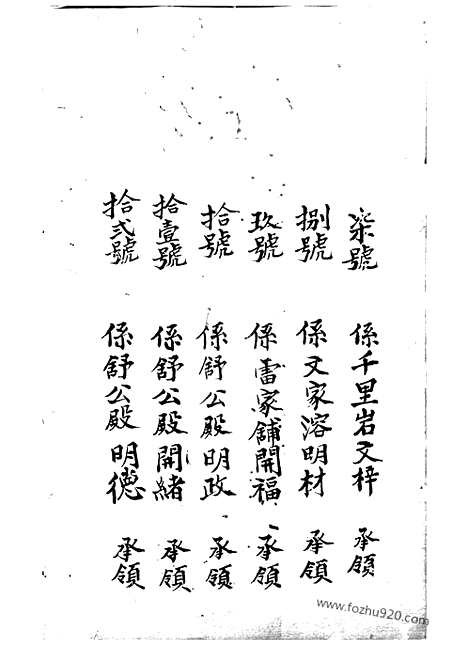 柒號 係千里岩文梓 承領
捌號 係文家溶明材 承領
玖號 係雷家舖開福 承領
拾號 係舒公殿明政 承領
拾壹號 係舒公殿開緒 承領
拾弍號 係舒公殿明德 承領
www.fozhu920.com